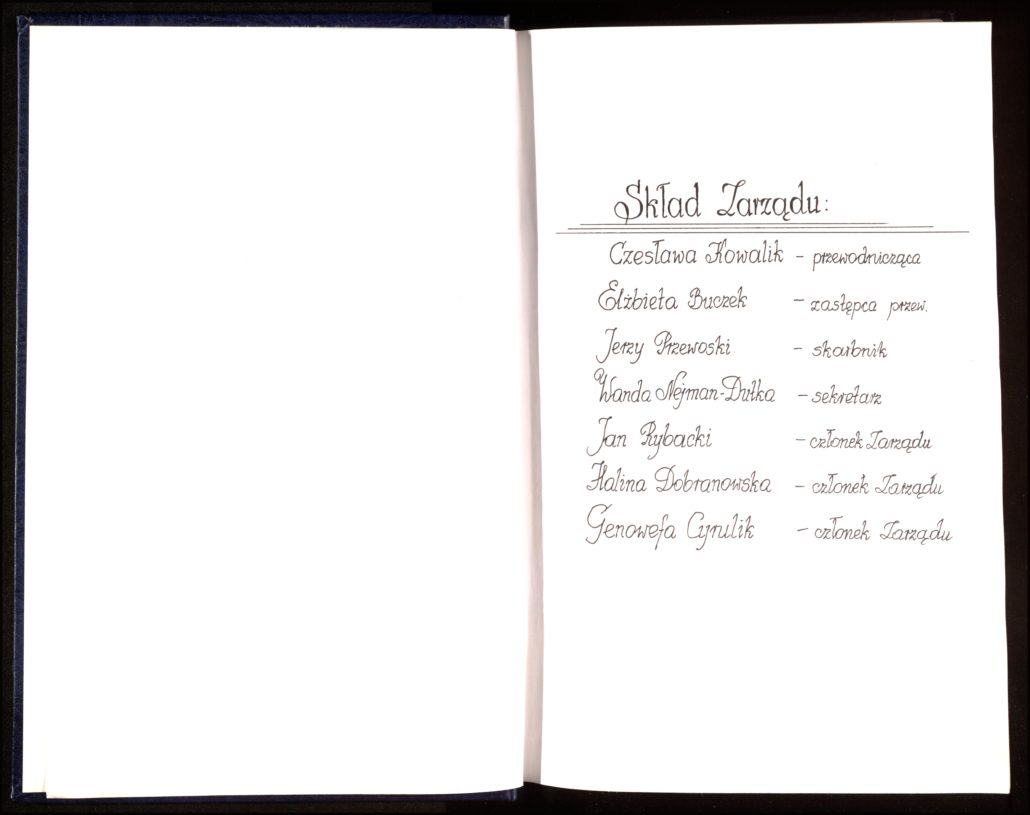 Skład Zarządu:
Czesława Kowalik - przewodnicząca
Elżbieta Buczek - zastępca przew.
Jerzy Przewoski - skarbnik
Wanda Nejman-Dutka - sekretarz
Jan Rybacki - członek Zarządu
Halina Dobranowska - członek Zarządu
Genowefa Cyrulik - członek Zarządu